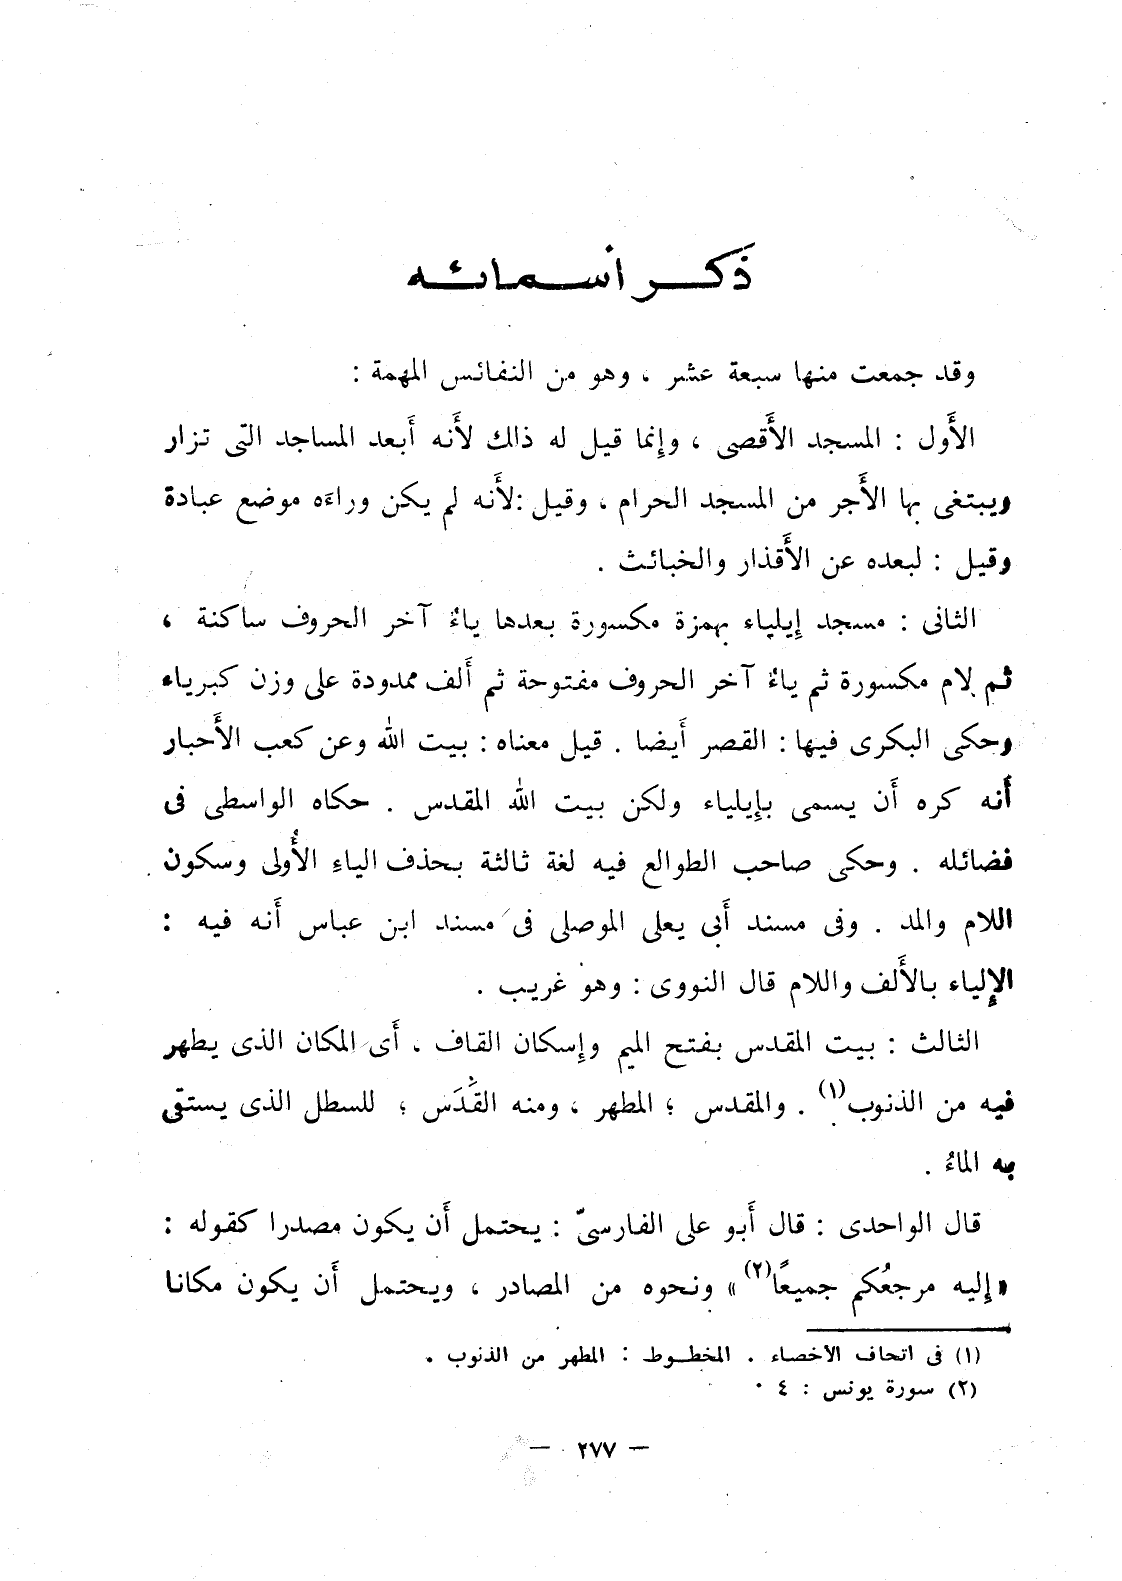 ذكر أسمائه
وقد جمعت منها سبعة عشر ، وهو من النفائس المهمة :
الأَول : المسجد الأَقصى ، وإنما قيل له ذلك لأَنه أَبعد المساجد التى تزار
ويبتغى بها الأَجر من المسجد الحرام ، وقيل :لأَنه لم يكن وراءَه موضع عبادة
وقيل : لبعده عن الأَقذار والخبائث .
الثانى : مسجد إيلياء بهمزة مكسورة بعدها ياءٌ آخر الحروف ساكنة ،
ثم لام مكسورة ثم ياءٌ آخر الحروف مفتوحة ثم أَلف ممدودة على وزن كبرياء
وحكى البكرى فيها : القصر أَيضا . قيل معناه : بيت الله وعن كعب الأَحبار
أَنه كره أَن يسمى بإيلياء ولكن بيت الله المقدس . حكاه الواسطى فى
فضائله . وحكى صاحب الطوالع فيه لغة ثالثة بحذف الياءِ الأُولى وسكون
اللام والمد . وفى مسند أَبى يعلى الموصلى فى مسند ابن عباس أَنه فيه :
الإِلياء بالأَلف واللام قال النووى : وهو غريب .
الثالث : بيت المقدس بفتح الميم وإسكان القاف ، أَى المكان الذى يطهر
فيه من الذنوب(١) . والمقدس ؛ المطهر ، ومنه القَدَس ؛ للسطل الذى يستقى
به الماءُ .
قال الواحدى : قال أَبو على الفارسىّ : يحتمل أَن يكون مصدرا كقوله :
«إليه مرجعُكم جميعًا(٢)» ونحوه من المصادر ، ويحتمل أَن يكون مكانا
(١) فى اتحاف الاخصاء . المخطوط : المطهر من الذنوب .
(٢) سورة يونس : ٤ .
— ٢٧٧ —